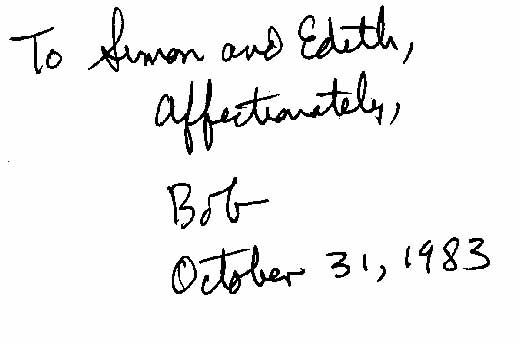 To Simon and Edith,
Affectionately,
Bob
October 31, 1983